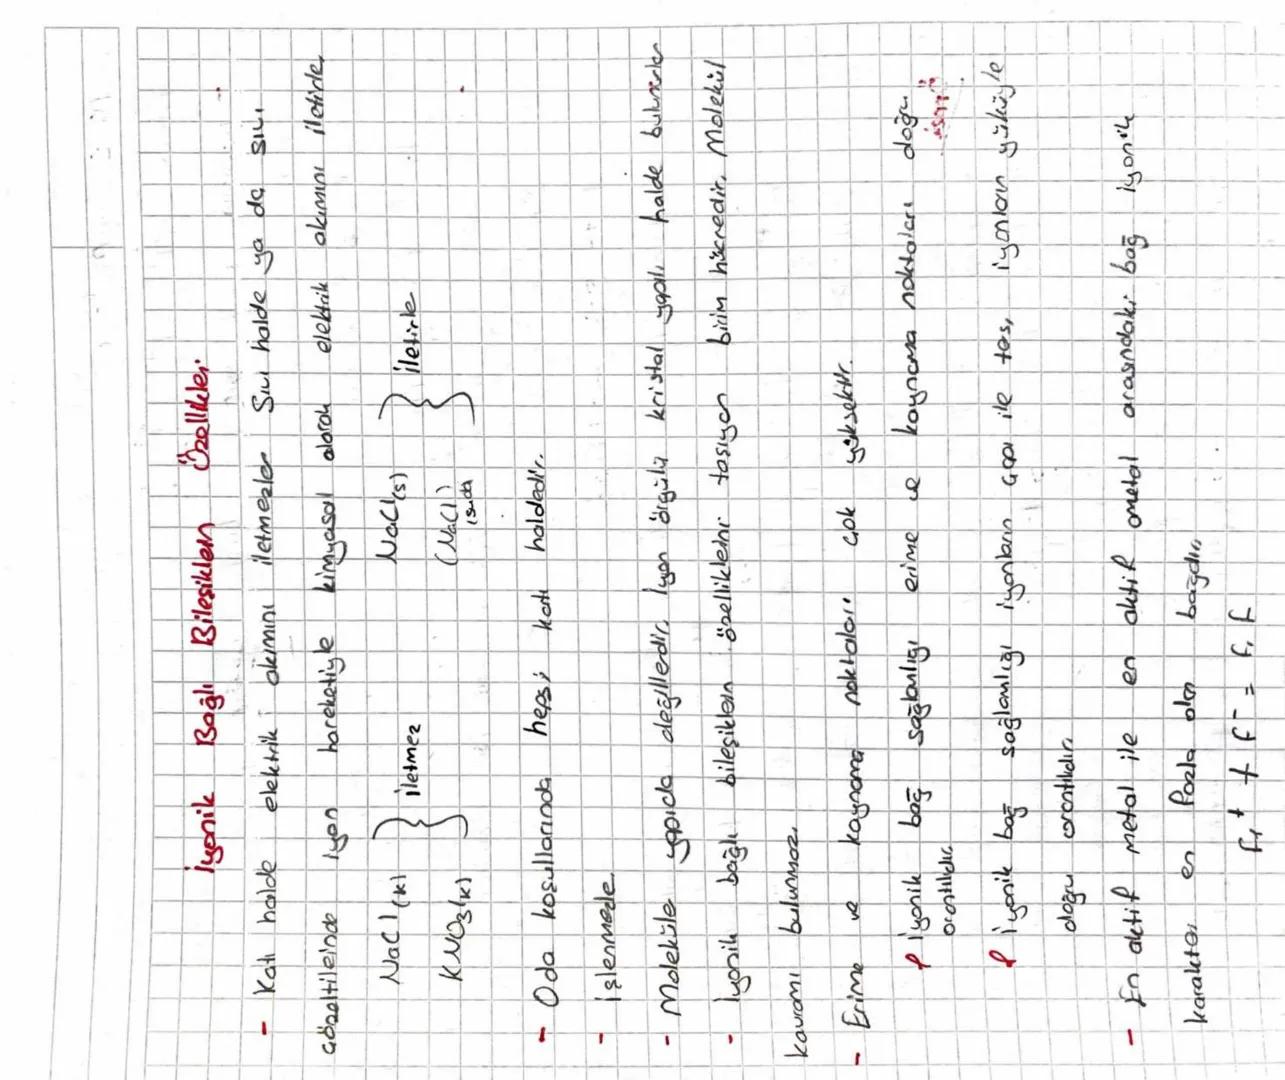 İyonik Bağlı Bileşiklerin Özellikleri
- Katı halde elektrik akımını iletmezler Sıvı halde ya da sıvı
çözeltilerinde iyon hareketiyle kimyasal olarak elektrik akımını iletirler.
NaCl(k) } iletmez NaCl(s) } iletirler
KNO3(k) (NaCl) suda
- Oda koşullarında hepsi katı haldedir.
- işlenmezler
- Moleküler yapıda değillerdir. İyon örgülü kristal yapılı halde bulunurlar
- İyonik bağlı bileşiklerin özelliklerini taşıyan birim hücredir. Molekül
kavramı bulunmaz.
- Erime ve kaynama noktaları çok yüksektir.
İyonik bağ sağlamlığı erime ve kaynama noktaları doğru
orantılıdır.
İyonik bağ sağlamlığı iyonların çapı ile ters, iyonların yüküyle
doğru orantılıdır.
- En aktif metal ile en aktif ametal arasındaki bağ iyonik
karakteri en fazla olan bağdır.
Fr+ + f- = Fr f